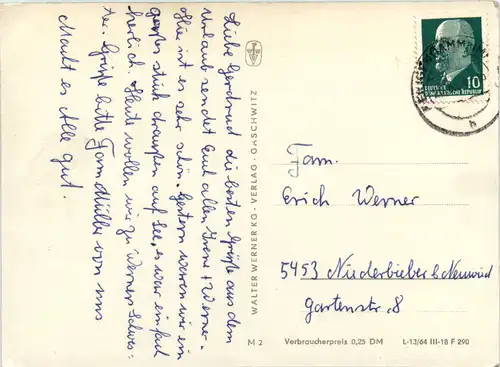 Liebe Gerdraud die besten Grüße aus dem
Urlaub sendet Euch allen Irene + Werner.
Hie ist es sehr schön. Gestern waren wir ein
großes stück draußen auf See, es war einfach
herlich. Heute wollen wir zu Werners Schwes-
ter. Grüße bitte Fam Müller von uns
Macht es Alle gut.
WALTER WERNER KG · VERLAG · GASCHWITZ
10
DEUTSCHE
DEMOKRATISCHE REPUBLIK
Fam.
Erich Werner
5453 Niederbieber b. Neuwied
Gartenstr. 8
M 2 Verbraucherpreis 0,25 DM L-13/64 III-18 F 290